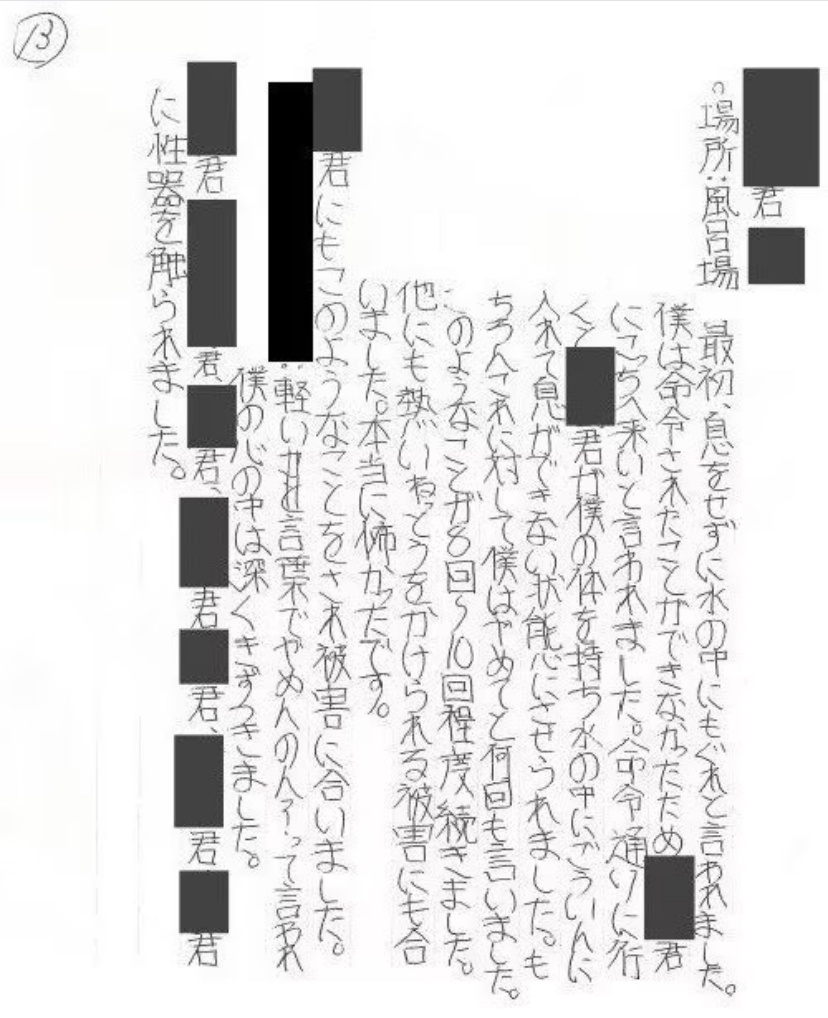 ⑬
君
。場所:風呂場
最初、息をせずに水の中にもぐれと言われました。
僕は命令されたことができなかったため 君
にこっち入来いと言われました。命令通りに行
くと 君が僕の体を持ち水の中にごういんに
入れて息ができない状態にさせられました。も
ちろんこれに対して僕はやめてと何回も言いました。
このようなことが8回～10回程度続きました。
他にも熱いねっとうをかけられる被害にも合
いました。本当に怖かったです。
君にもこのようなことをされ被害に合いました。
:軽いけど言葉でやめんのん?って言われ
僕の心の中は深くきずつきました。
君 君、 君、 君 君、 君 君
に性器を触られました。